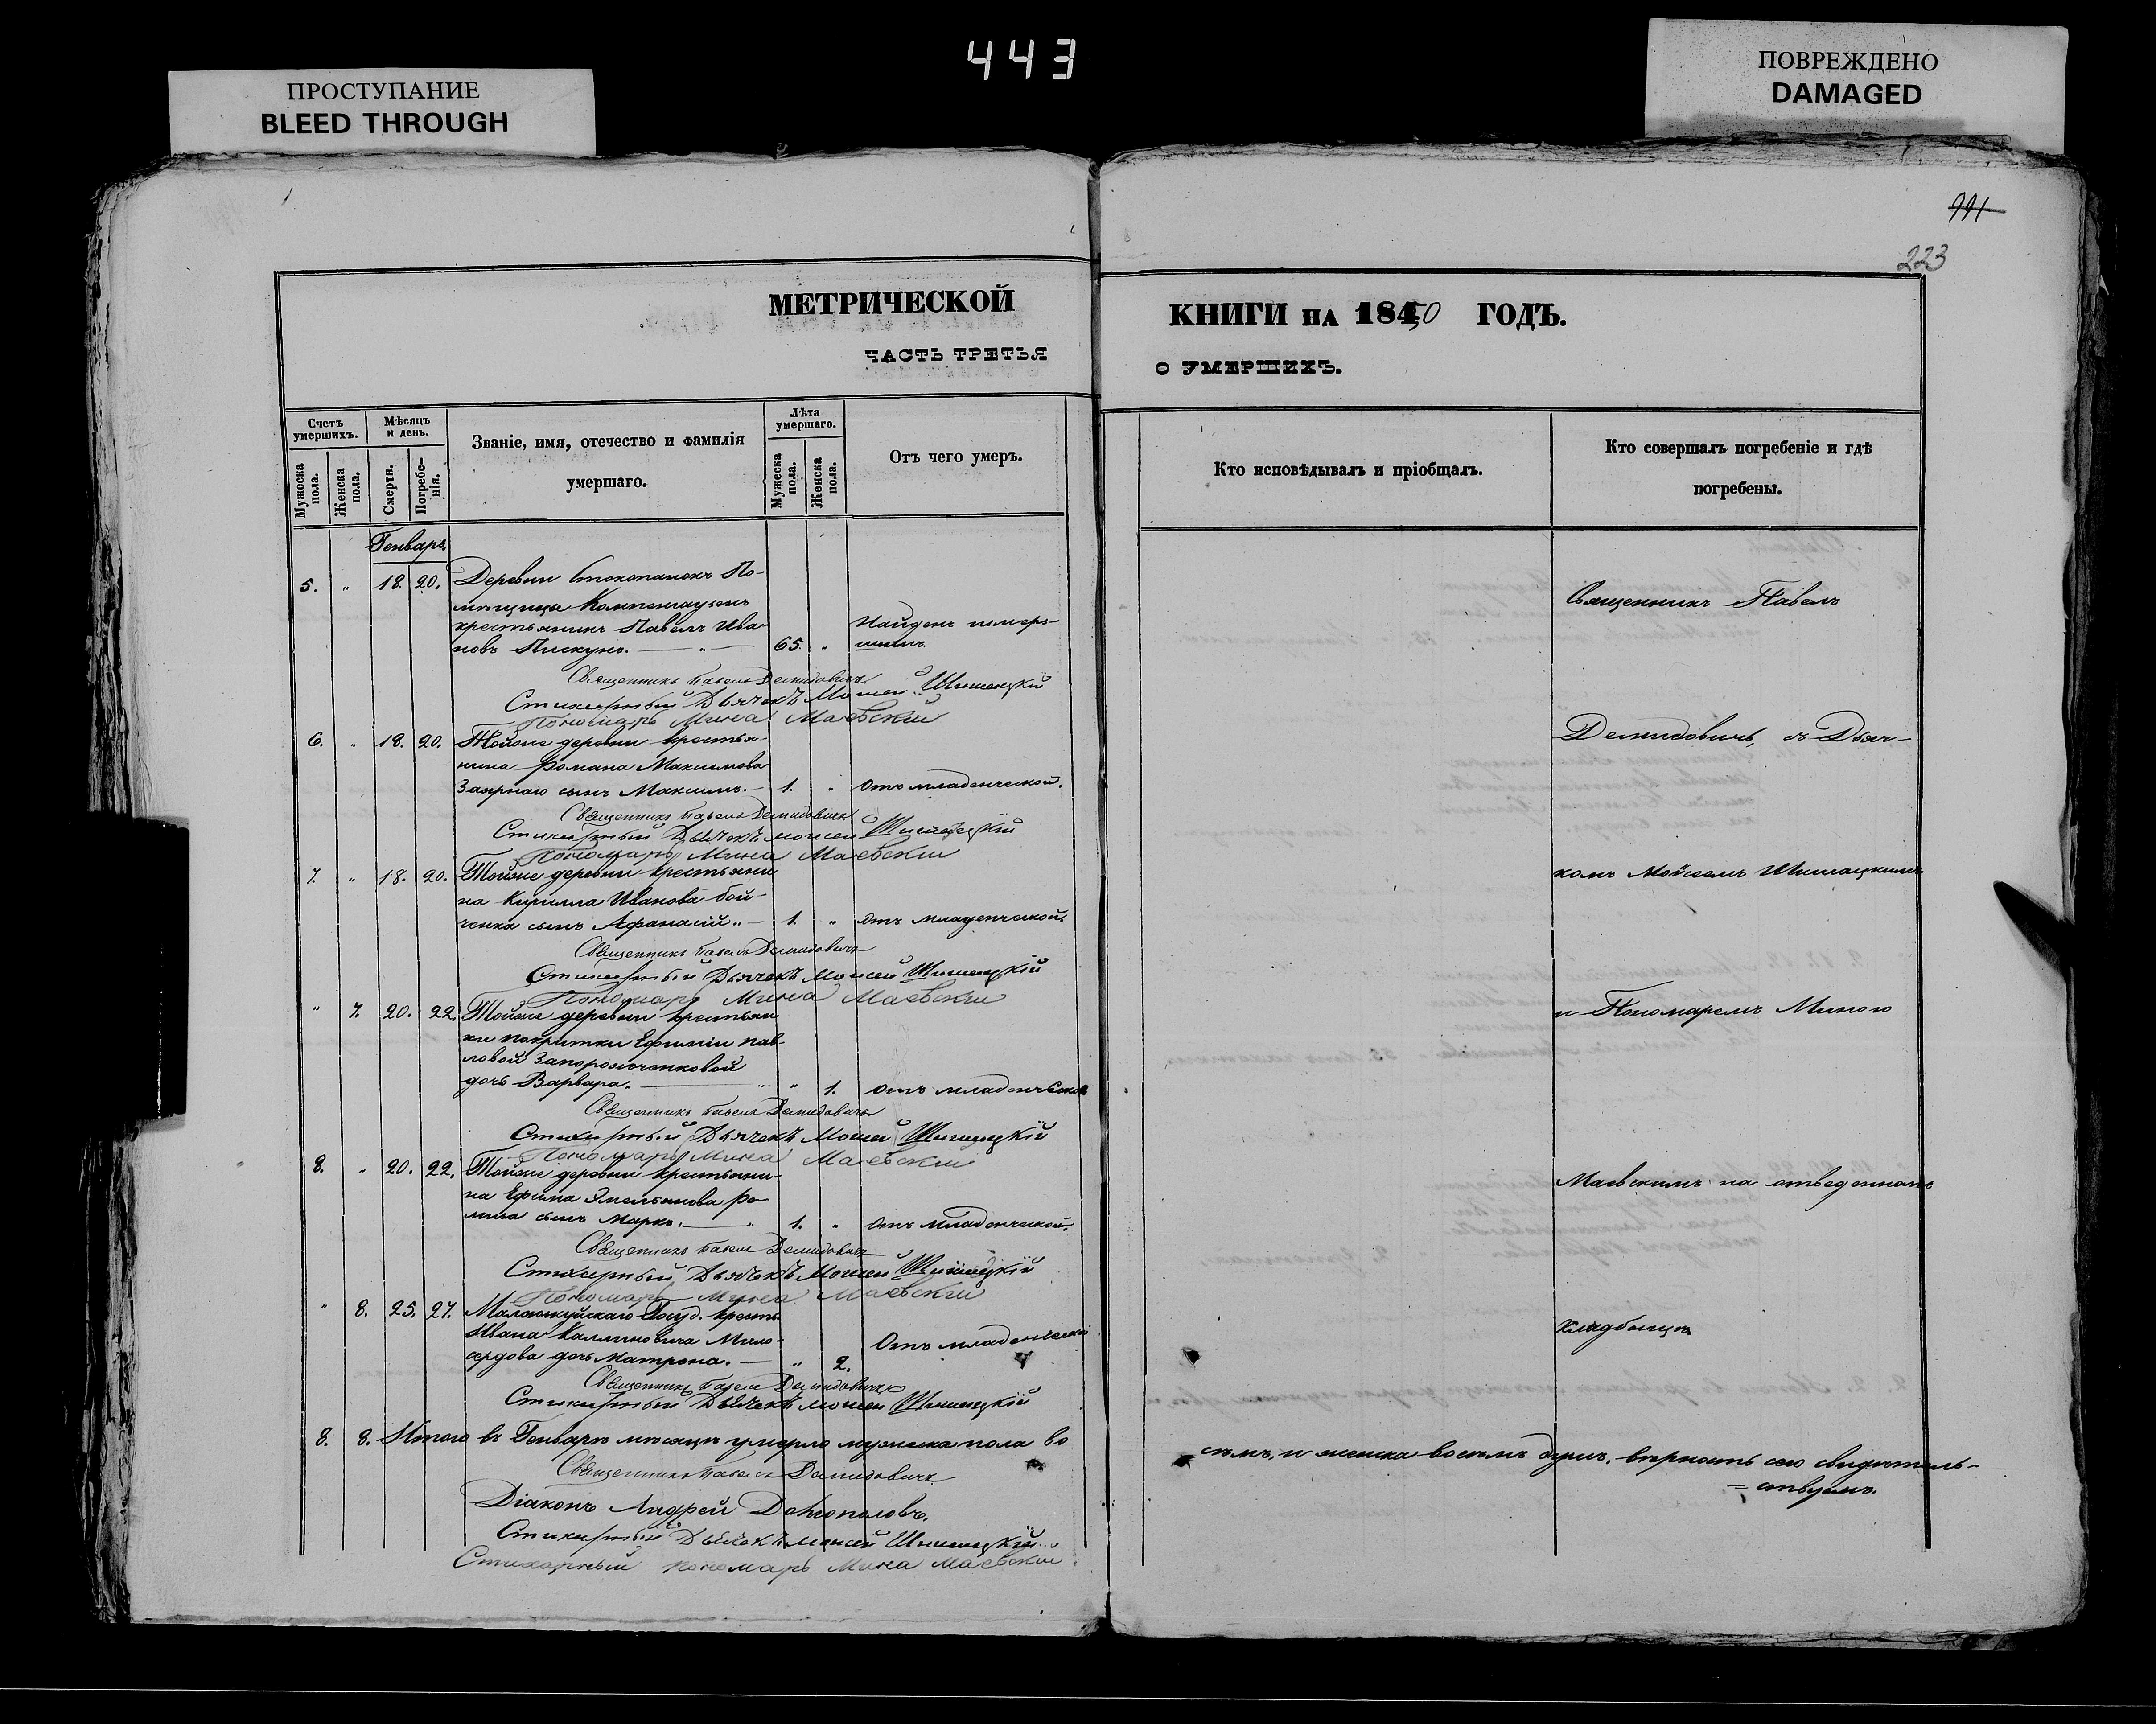 443
ПРОСТУПАНИЕ
BLEED THROUGH
ПОВРЕЖДЕНО
DAMAGED
991
223
МЕТРИЧЕСКОЙ
КНИГИ НА 1850 ГОДЪ.
ЧАСТЬ ТРЕТЬЯ
О УМЕРШИХЪ.
Счетъ умершихъ.
Мѣсяцъ и день.
Званіе, имя, отечество и фамилія умершаго.
Лѣта умершаго.
Отъ чего умеръ.
Кто исповѣдывалъ и пріобщалъ.
Кто совершалъ погребеніе и гдѣ погребены.
Мужеска пола.
Женска пола.
Смерти.
Погребенія.
Мужеска пола.
Женска пола.
Генварь
5. " 18. 20. Деревни По-
мѣщица
крестьянинъ Павелъ Ива-
новъ Пискунъ. " 65. " Найденъ умер-
шимъ.
Священникъ Павелъ
Священникъ Павелъ Демидовичъ
Стихарный Дьячекъ Моисей Шишацкій
Пономарь Мина Маевскій
6. " 18. 20. Тойже деревни крестья-
нина Романа Максимова
Заярнаго сынъ Максимъ. 1. " Отъ младенческой.
Демидовичь, съ Дьяч-
Священникъ Павелъ Демидовичъ
Стихарный Дьячекъ Моисей Шишацкій
Пономарь Мина Маевскій
7. " 18. 20. Тойже деревни крестьяни
на Кирилла Иванова Бой-
ченка сынъ Афанасій. 1. " Отъ младенческой.
комъ Мойсеемъ Шишацкимъ
Священникъ Павелъ Демидовичъ
Стихарный Дьячекъ Моисей Шишацкій
Пономарь Мина Маевскій
" 7. 20. 22. Тойже деревни крестьян
ки покритки Ефиміи Пав-
ловой Запорожченковой
дочь Варвара. " 1. Отъ младенческой
и Пономаремъ Миною
Священникъ Павелъ Демидовичъ
Стихарный Дьячекъ Моисей Шишацкій
Пономарь Мина Маевскій
8. " 20. 22. Тойже деревни крестьяни-
на Ефима Емельянова
сынъ Марко. " 1. " Отъ младенческой.
Маевскимъ на отведенномъ
Священникъ Павелъ Демидовичъ
Стихарный Дьячекъ Моисей Шишацкій
Пономарь Мина Маевскій
" 8. 25. 27. Госуд. крест.
Ивана Калиновича Мило-
сердова дочь Матрона. " 2. Отъ младенческой
кладбищѣ
Священникъ Павелъ Демидовичъ
Стихарный Дьячекъ Моисей Шишацкій
8. 8. Итого въ Генварѣ мѣсяцѣ умерло мужеска пола во
семь, и женска восемь душъ, вѣрность сего свидѣтель-
=ствуемъ.
Священникъ Павелъ Демидовичъ
Діаконъ Андрей
Стихарный Дьячекъ Моисей Шишацкій
Стихарный пономарь Мина Маевскій